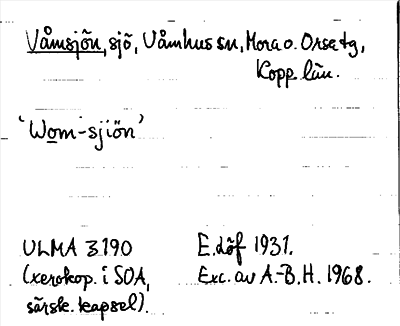 Våmsjön, sjö, Våmhus sn, Mora o. Orsa tg,
Kopp. län.
'Wom-sjiön'
ULMA 3190 E. döf 1931.
(xerokop. i SOA, Exc. av A.-B.H. 1968.
särsk. kapsel).